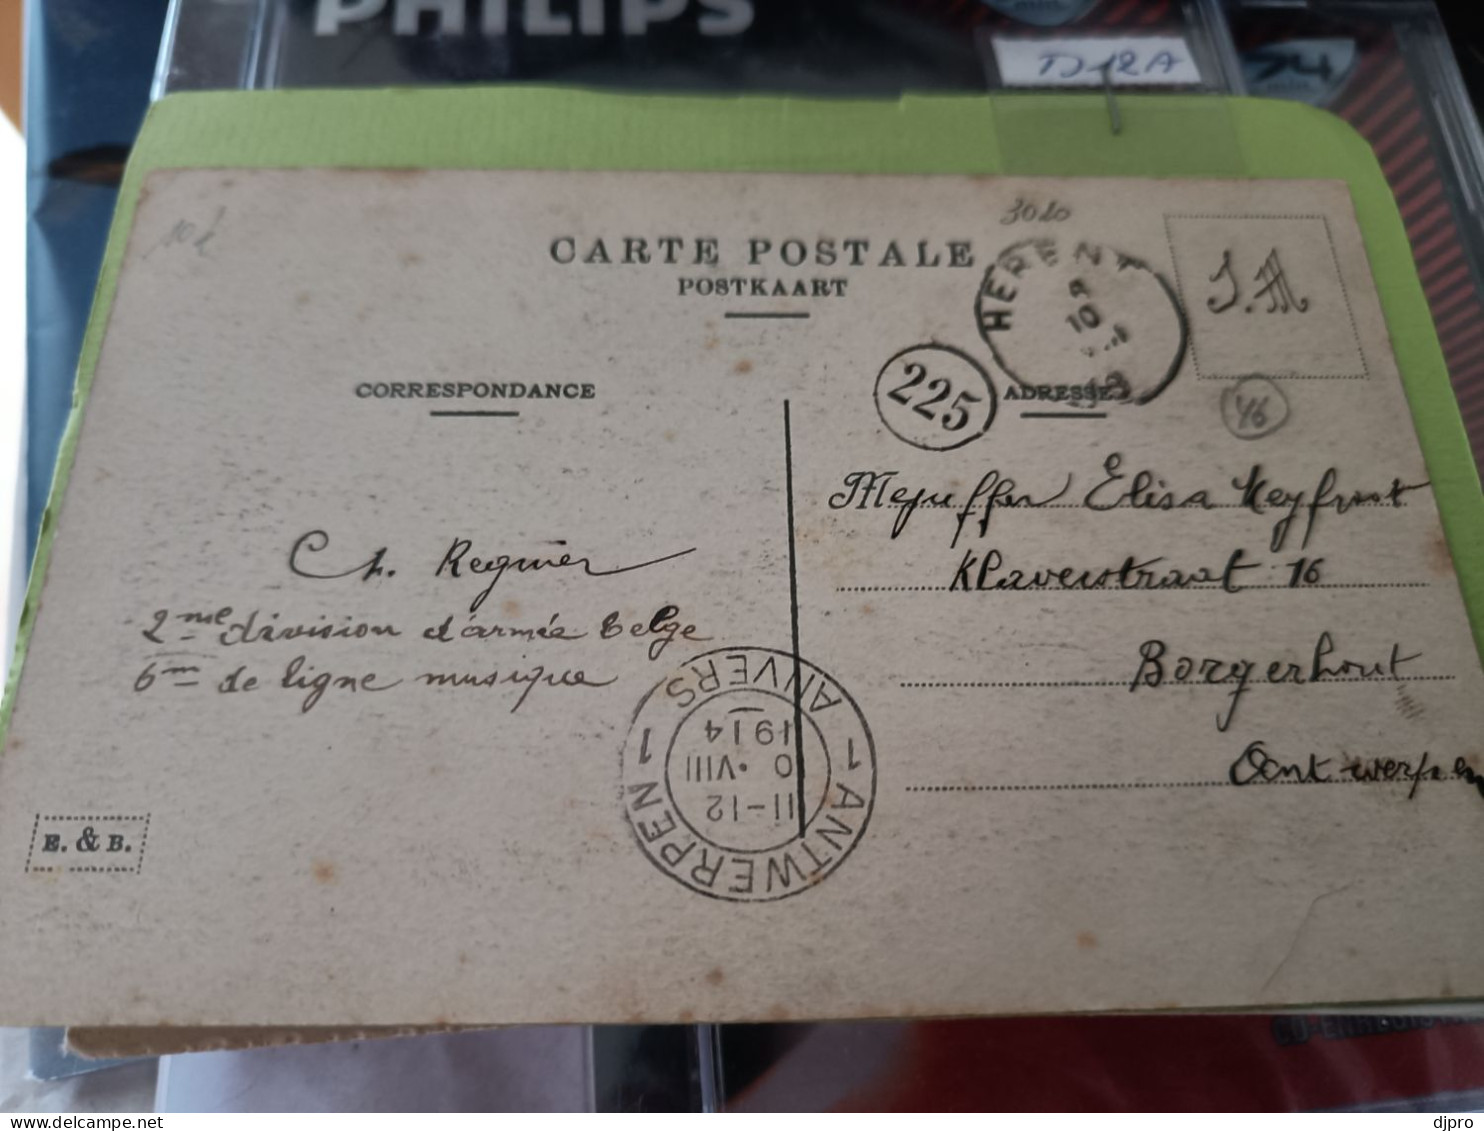 PHILIPS
TJ 12 A
3020
10
CARTE POSTALE
POSTKAART
HERENT
10
S.M
225
CORRESPONDANCE
ADRESSE
46
Mejuffer Elisa Keyfrost
Klaverstraat 16
Borgerhout
Ant werpen
Ch. Regnier
2me division d'armée belge
6m de ligne musique
1 ANTWERPEN 1 ANVERS
11-12
0 · VIII
1914
E. & B.
delcampe.net
djpro